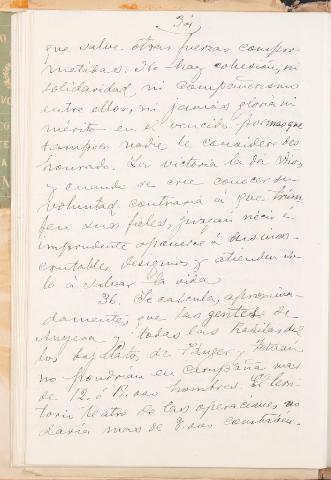 34
que salve otras fuerzas compro-
metidas. No hay cohesión, ni
solidaridad, ni compañerismo
entre ellos, ni jamás gloria ni
mérito en el vencido, por mas que
tampoco nadie le considere des
honrado. La victoria la da Dios
y cuando se cree conocer su
voluntad contraria á que triun
fen sus fieles, juzgan nécio é
imprudente oponerse á sus ines-
crutables designios y atienden so
lo á salvar la vida
36. Se calcula, aproxima-
damente, que las gentes de
Anyera y todas las Kabilas de
los bajalatos de Tánger y Tetuán
no pondrían en campaña mas
de 12 ó 13.000 hombres. El terri
torio teatro de las operaciones no
daría mas de 8.000 combatien-